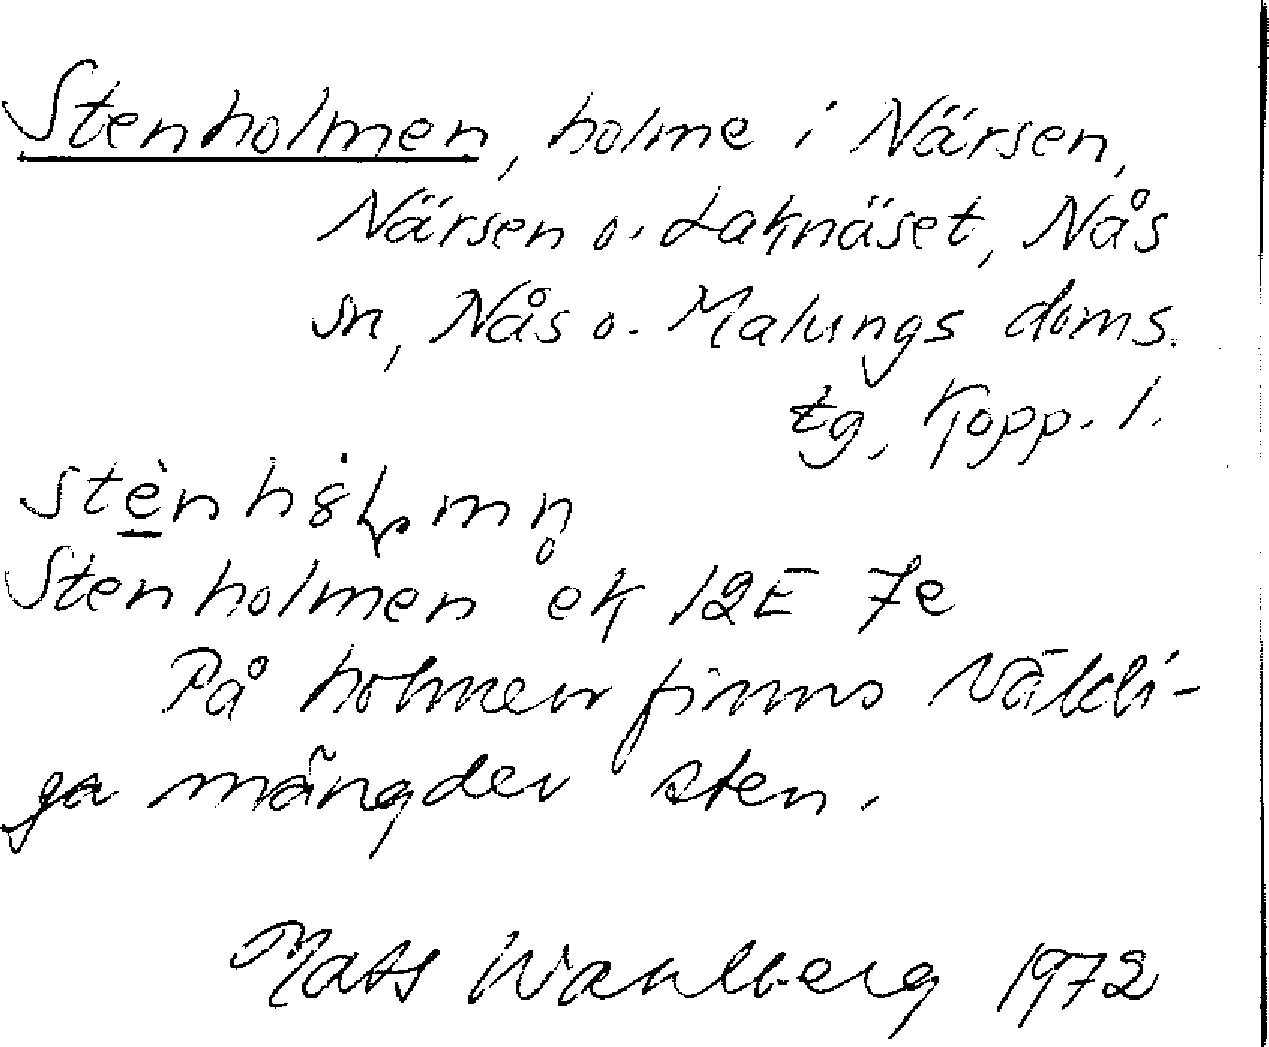 Stenholmen, holme i Närsen,
Närsen o. Laknäset, Nås
sn, Nås o. Malungs doms.
tg, Kopp. l.
Stenholmen ek 12E 7e
På holmen finns väldi-
ga mängder sten.
Mats Wahlberg 1972